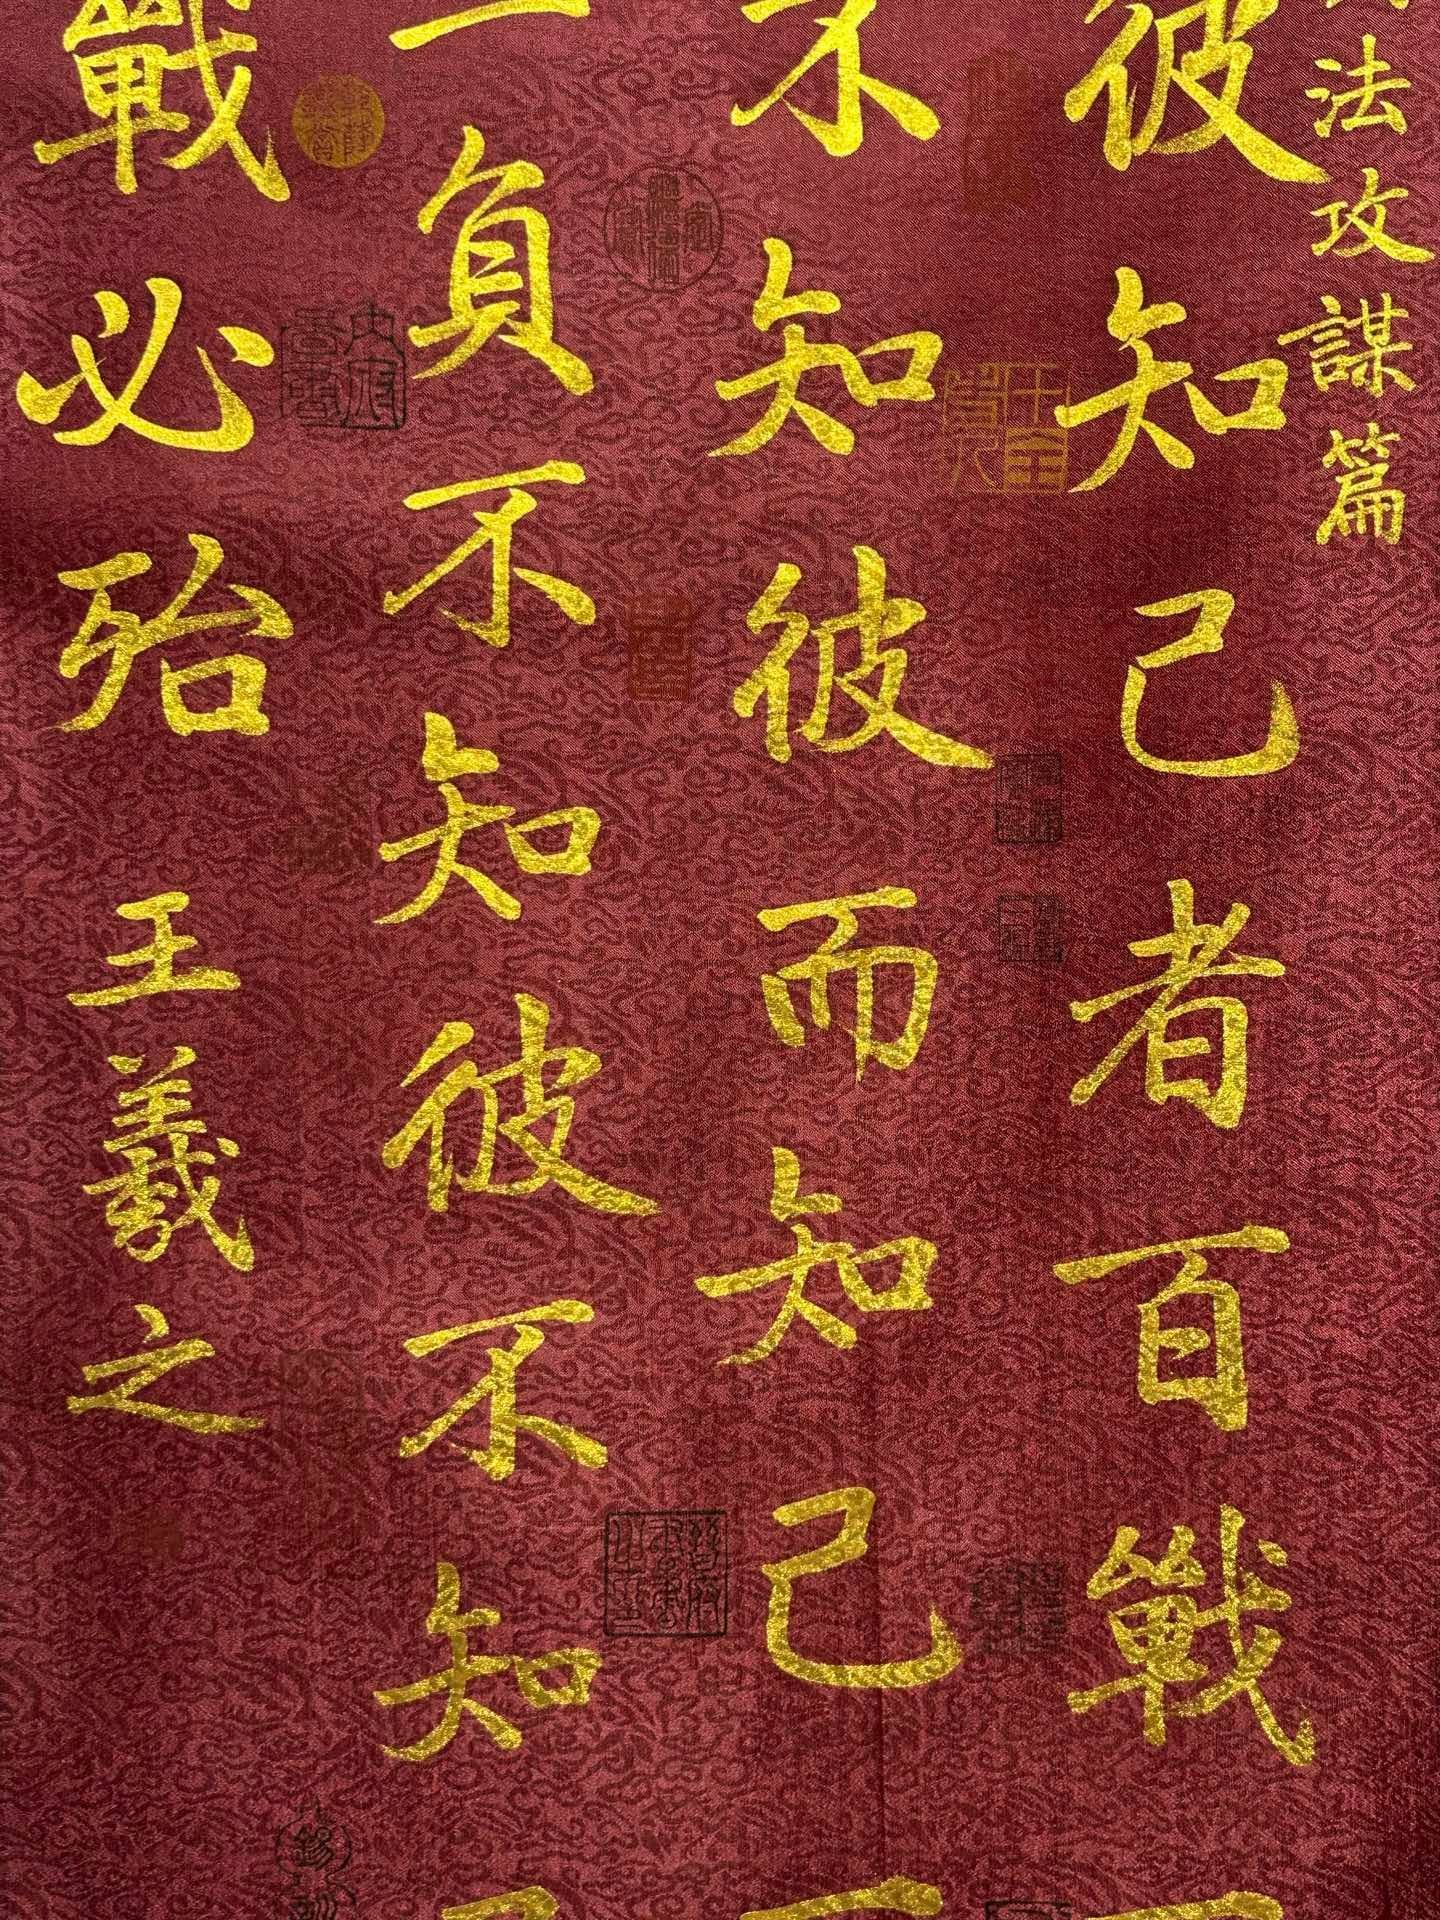 法攻謀篇
彼知己者百戰
不知彼而知己
一負不知彼不知
戰必殆
王羲之